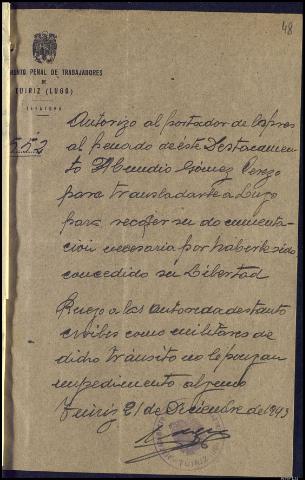 48
MENTO PENAL DE TRABAJADORES
DE
TUIRIZ (LUGO)
JEFATURA
552
Autorizo al portador de la pres
al penado de éste Destacamen
to Abundio Gómez Cerezo
para transladarse a Lugo
para recojer su documenta-
ción necesaria por haberle sido
concedido su Libertad
Ruego a las autoridades tanto
civiles como militares de
dicho tránsito no le pongan
impedimento alguno
Tuiriz 21 de Diciembre de 1943
TUIRIZ